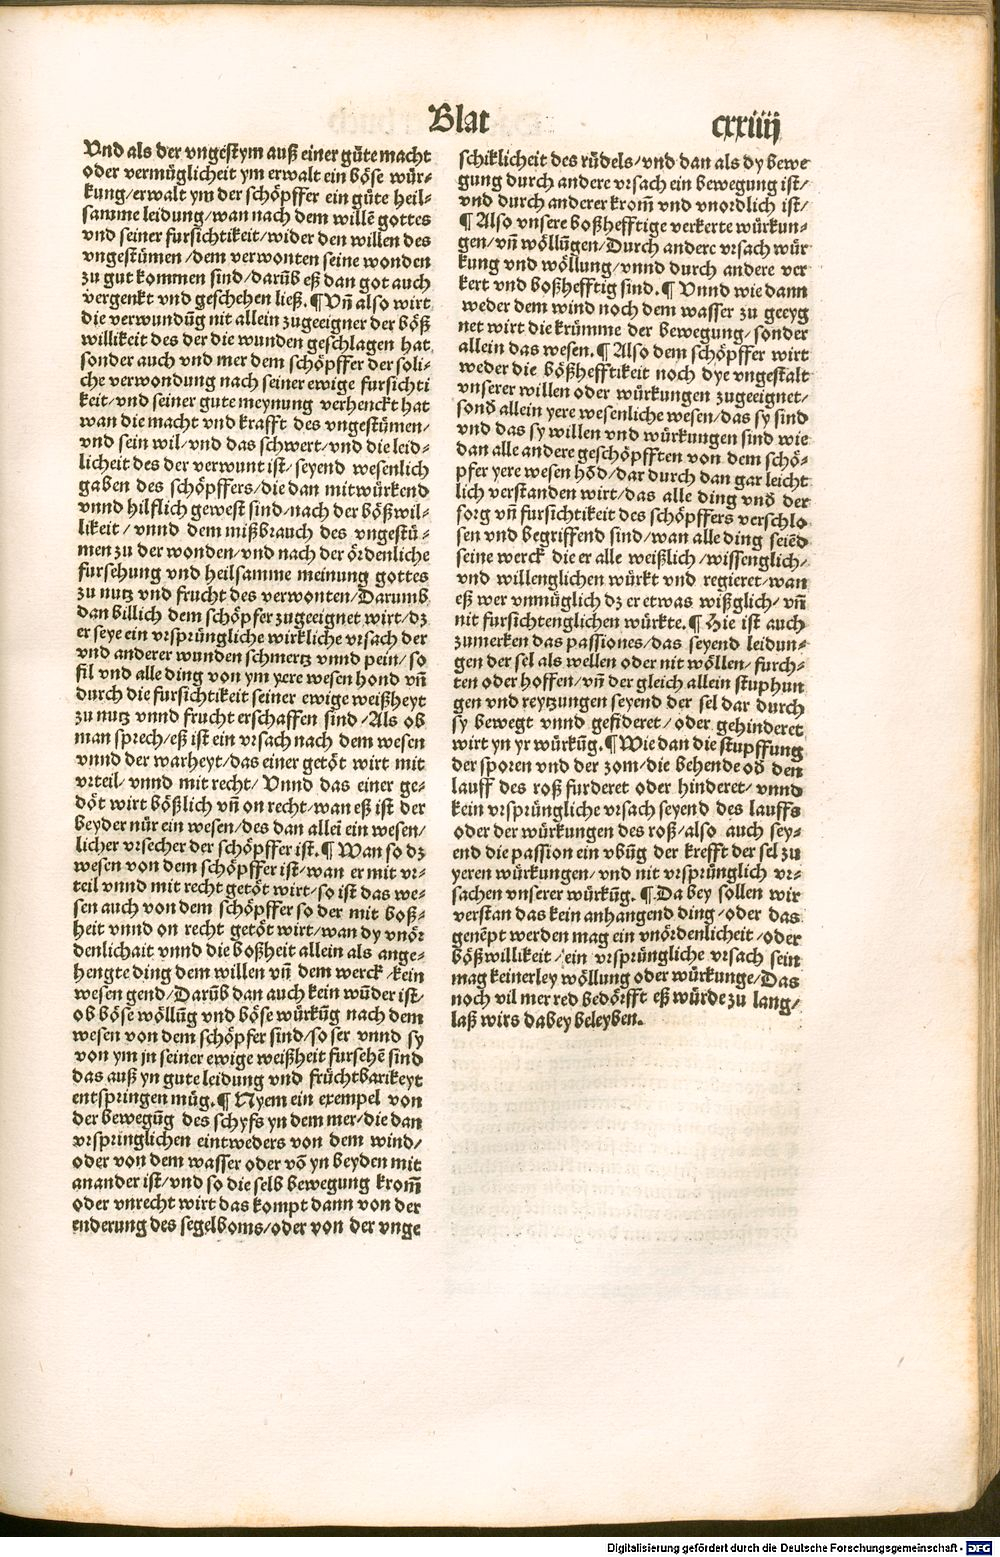 Blat cxxiiij
Vnd als der vngestym auß einer gůte macht
oder vermüglicheit ym erwalt ein böse wür⸗
kung/erwalt ym der schöpffer ein gůte heil⸗
samme leidung/wan nach dem willē gottes
vnd seiner fursichtikeit/wider den willen des
vngestümen /dem verwonten seine wonden
zu gut kommen sind/darūb eß dan got auch
vergenkt vnd geschehen ließ.¶Vn̄ also wirt
die verwundūg nit allein zugeeigner der böß
willikeit des der die wunden geschlagen hat
sonder auch vnd mer dem schöpffer der soli⸗
che verwondung nach seiner ewige fursichti
keit/vnd seiner gute meynung verhenckt hat
wan die macht vnd krafft des vngestümen/
vnd sein wil/vnd das schwert/vnd die leid⸗
licheit des der verwunt ist/ seyend wesenlich
gaben des schöpffers/die dan mitwürkend
vnnd hilflich gewest sind/nach der bößwil⸗
likeit/ vnnd dem mißbrauch des vngestü⸗
men zu der wonden/vnd nach der ördenliche
fursehung vnd heilsamme meinung gottes
zu nutz vnd frucht des verwonten/Darumb
dan billich dem schöpfer zugeeignet wirt/dz
er seye ein vrsprüngliche wirkliche vrsach der
vnd anderer wunden schmertz vnnd pein/ so
fil vnd alle ding von ym yere wesen hond vn̄
durch die fursichtikeit seiner ewige weißheyt
zu nutz vnnd frucht erschaffen sind /Als ob
man sprech/eß ist ein vrsach nach dem wesen
vnnd der warheyt/das einer getöt wirt mit
vrteil/vnnd mit recht/ Vnnd das einer ge⸗
döt wirt bößlich vn̄ on recht/wan eß ist der
beyder nür ein wesen/des dan allei ein wesen/
licher vrsecher der schöpffer ist.¶ Wan so dz
wesen von dem schöpffer ist/wan er mit vr⸗
teil vnnd mit recht getöt wirt/so ist das we⸗
sen auch von dem schöpffer so der mit boß⸗
heit vnnd on recht getöt wirt/wan dy vnör
denlichait vnnd die boßheit allein als ange⸗
hengte ding dem willen vn̄ dem werck /kein
wesen gend/Darūb dan auch kein wūder ist/
ob böse wöllūg vnd böse würkūg nach dem
wesen von dem schöpfer sind/so ser vnnd sy
von ym jn seiner ewige weißheit fursehē sind
das auß yn gute leidung vnd früchtbarikeyt
entspringen müg.¶ Nyem ein exempel von
der bewegūg des schyfs yn dem mer/die dan
vrspringlichen eintweders von dem wind/
oder von dem wasser oder vō yn beyden mit
anander ist/vnd so die selb bewegung krom̄
oder vnrecht wirt das kompt dann von der
enderung des segelboms/oder von der vnge
schiklicheit des rüdels/vnd dan als dy bewe
gung durch andere vrsach ein bewegung ist/
vnd durch anderer krom̄ vnd vnordlich ist/
¶ Also vnsere boßhefftige verkerte würkun⸗
gen/vn̄ wöllūgen/Durch andere vrsach wür
kung vnd wöllung/vnnd durch andere ver
kert vnd boßhefftig sind.¶ Vnnd wie dann
weder dem wind noch dem wasser zu geeyg
net wirt die krümme der bewegung/sonder
allein das wesen.¶ Also dem schöpffer wirt
weder die bößhefftikeit noch dye vngestalt
vnserer willen oder würkungen zugeeignet/
sond̄ allein yere wesenliche wesen/das sy sind
vnd das sy willen vnd würkungen sind wie
dan alle andere geschöpfften von dem schö⸗
pfer yere wesen hōd/dar durch dan gar leicht
lich verstanden wirt/das alle ding vnd̄ der
sorg vn̄ fursichtikeit des schöpffers verschlo
sen vnd begriffend sind/wan alle ding seiēd
seine werck die er alle weißlich/wissenglich/
vnd willenglichen würkt vnd regieret/wan
eß wer vnmüglich dz er etwas wißglich/ vn̄
nit fursichtenglichen würkte.¶ Hie ist auch
zumerken das passiones/das seyend leidun⸗
gen der sel als wellen oder nit wöllen/ furch⸗
ten oder hoffen/vn̄ der gleich allein stuphun
gen vnd reytzungen seyend der sel dar durch
sy bewegt vnnd gefideret/oder gehinderet
wirt yn yr würkūg.¶Wie dan die stupffung
der sporen vnd der zom/die behende od̄ den
lauff des roß furderet oder hinderet/ vnnd
kein vrsprüngliche vrsach seyend des lauffs
oder der würkungen des roß/also auch sey⸗
end die passion ein vbūg der krefft der sel zu
yeren würkungen/vnd nit vrsprünglich vr⸗
sachen vnserer würkūg. ¶Da bey sollen wir
verstan das kein anhangend ding/oder das
genēpt werden mag ein vnördenlicheit/oder
bößwillikeit/ein vrsprüngliche vrsach sein
mag keinerley wöllung oder würkunge/Das
noch vil mer red bedörfft eß würde zu lang/
laß wirs dabey beleyben.
Digitalisierung gefördert durch die Deutsche Forschungsgemeinschaft - DFG